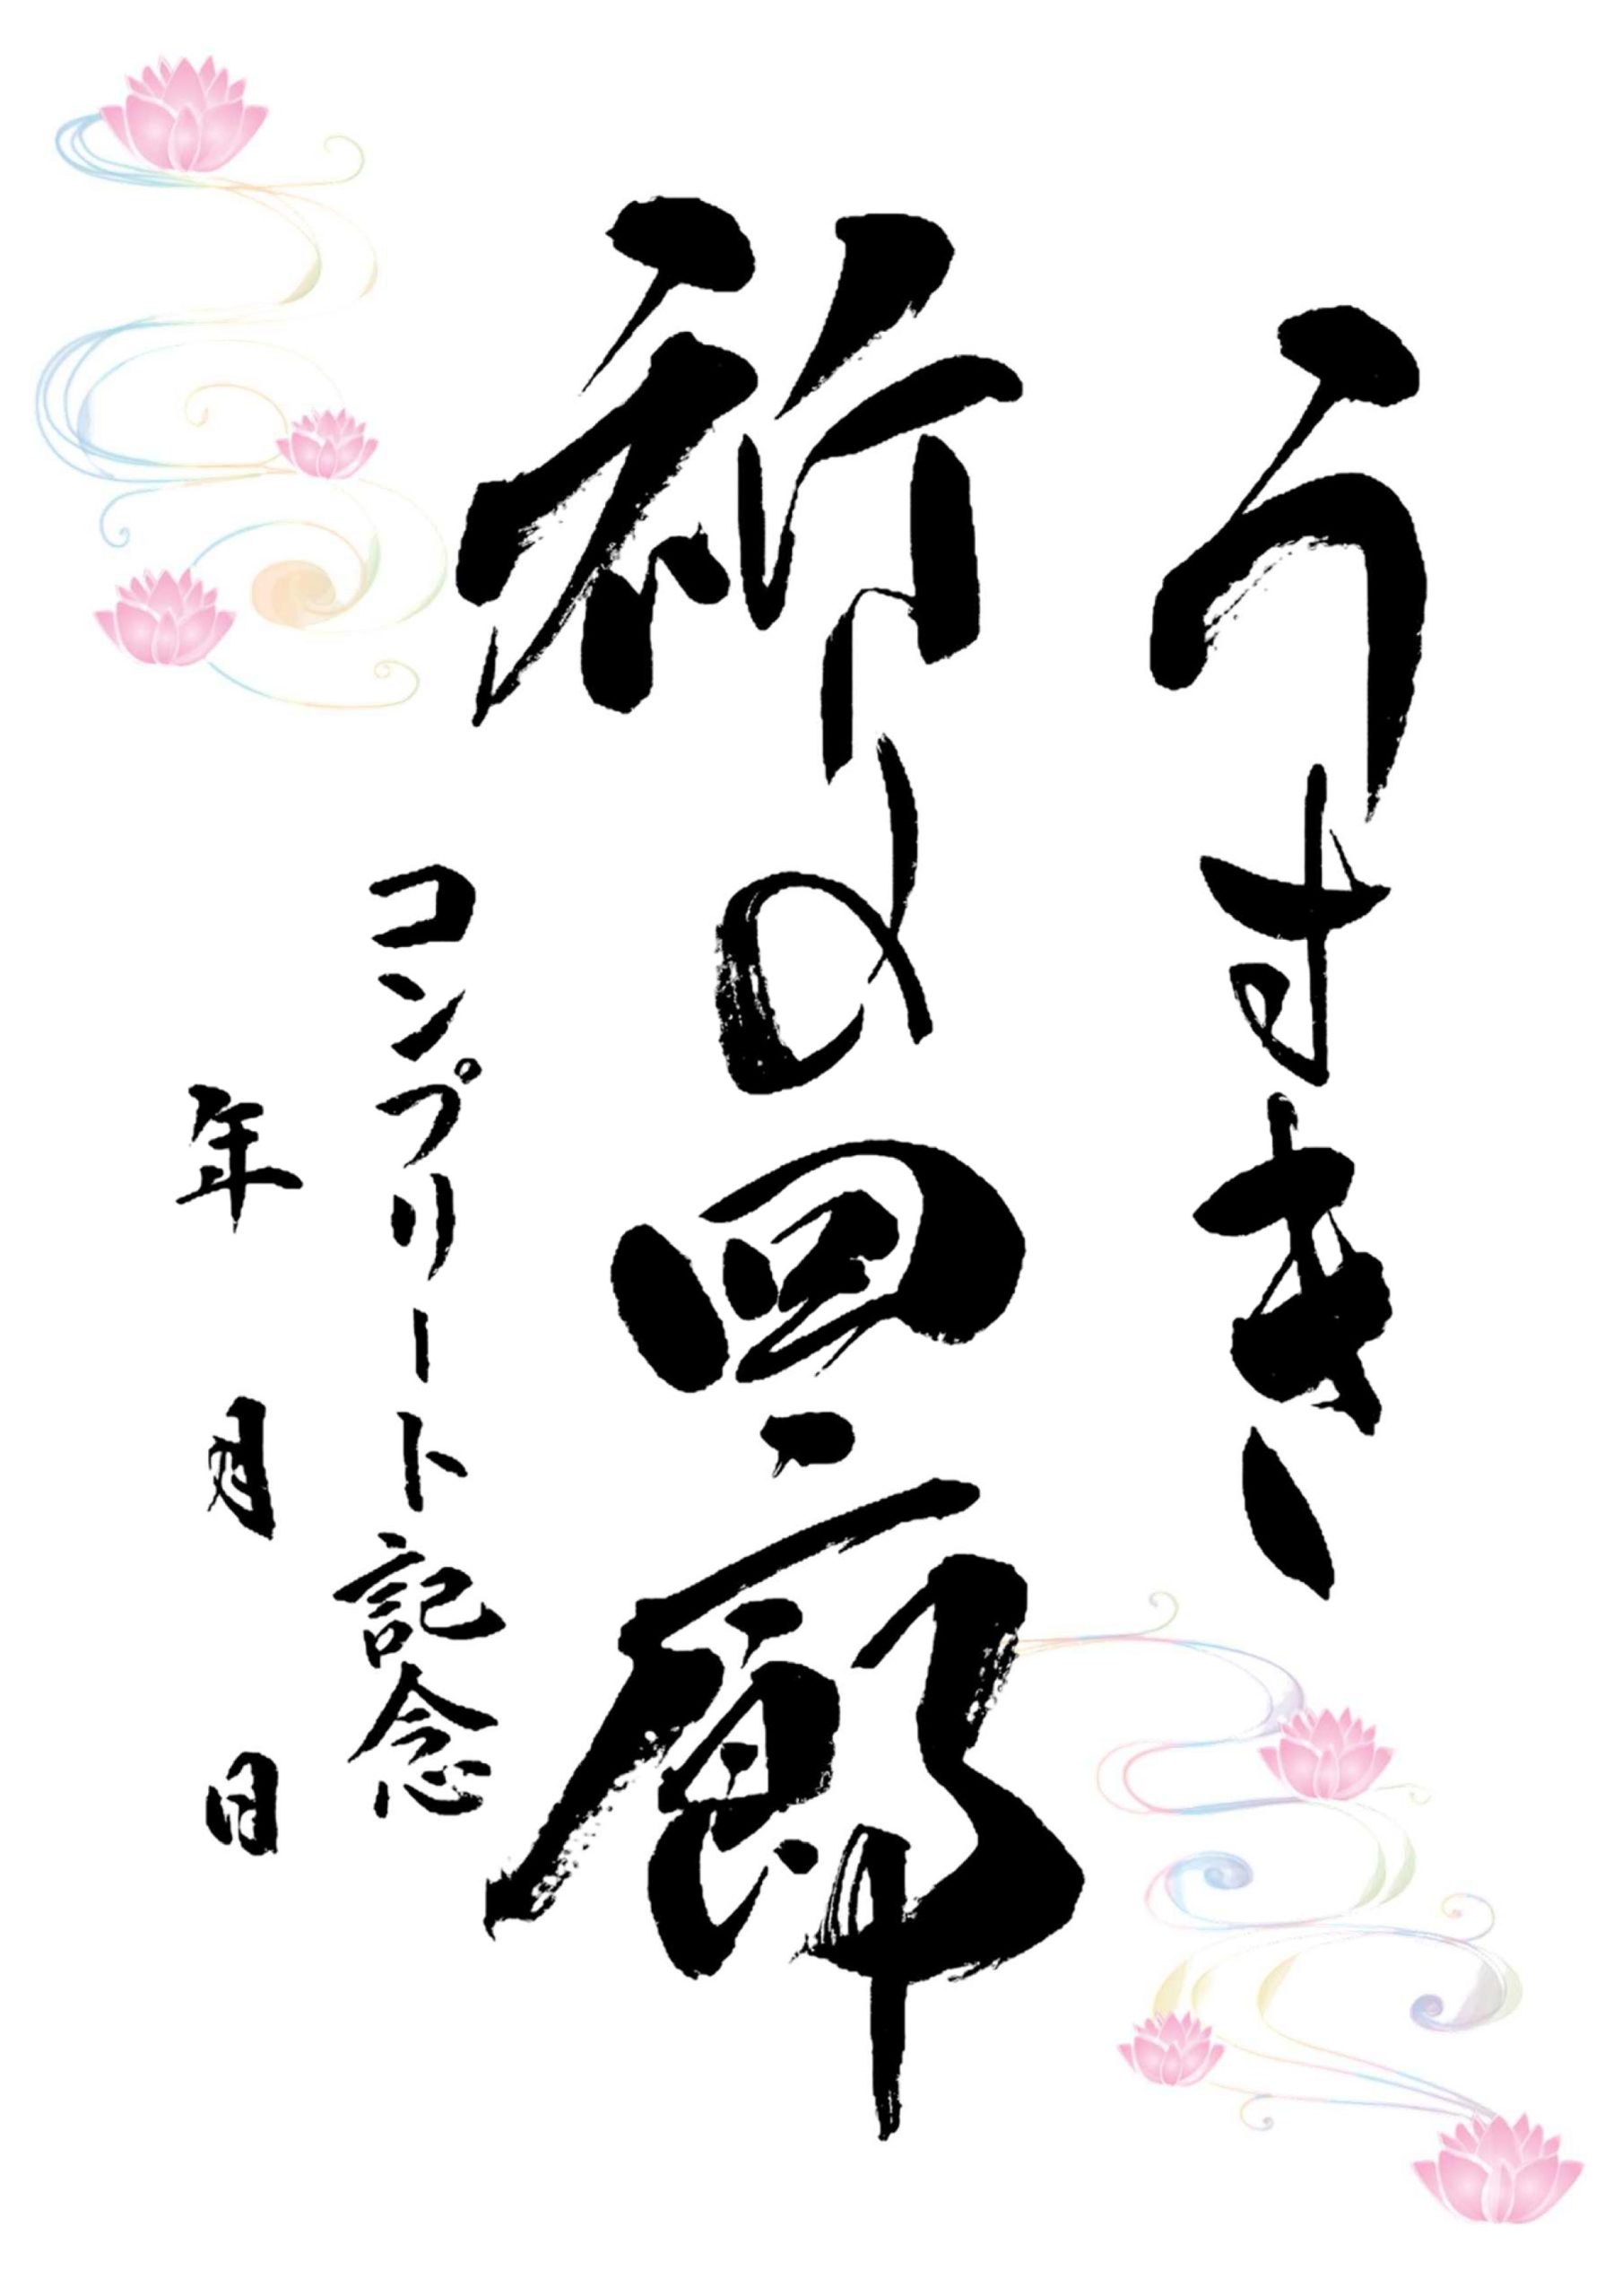 うすきい
祈りの回廊
コンプリート記念
年 月 日